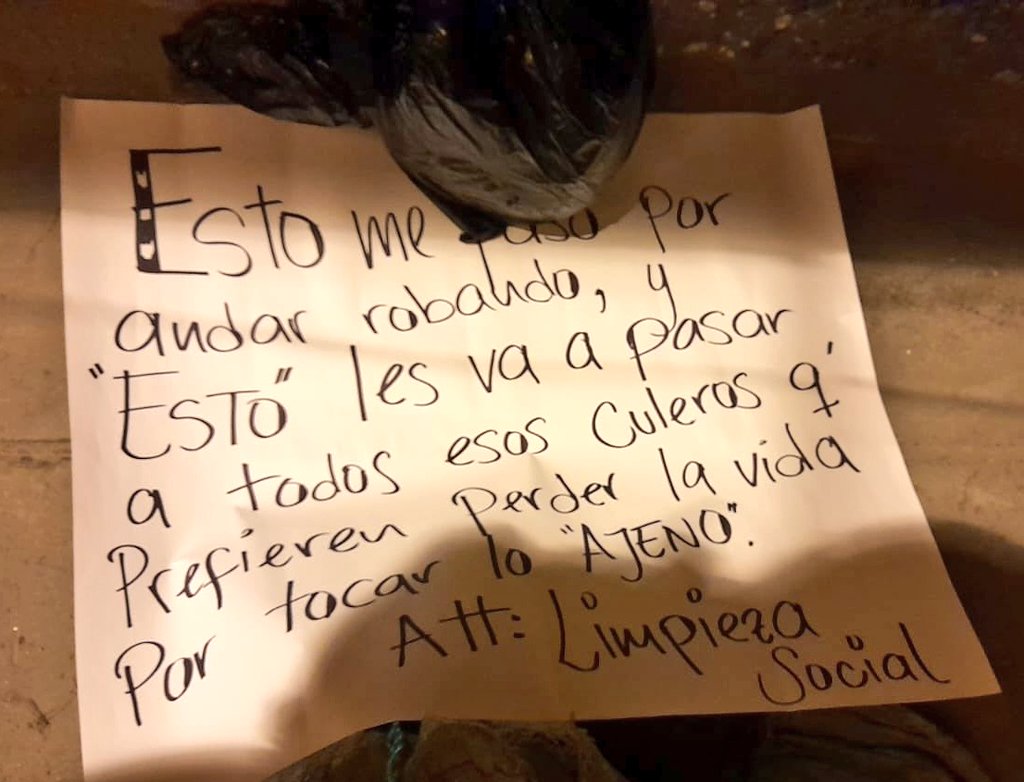 Esto me paso por
andar robando, y
"ESTO" les va a pasar
a todos esos culeros q'
Prefieren perder la vida
Por tocar lo "AJENO".
Att: Limpieza
Social